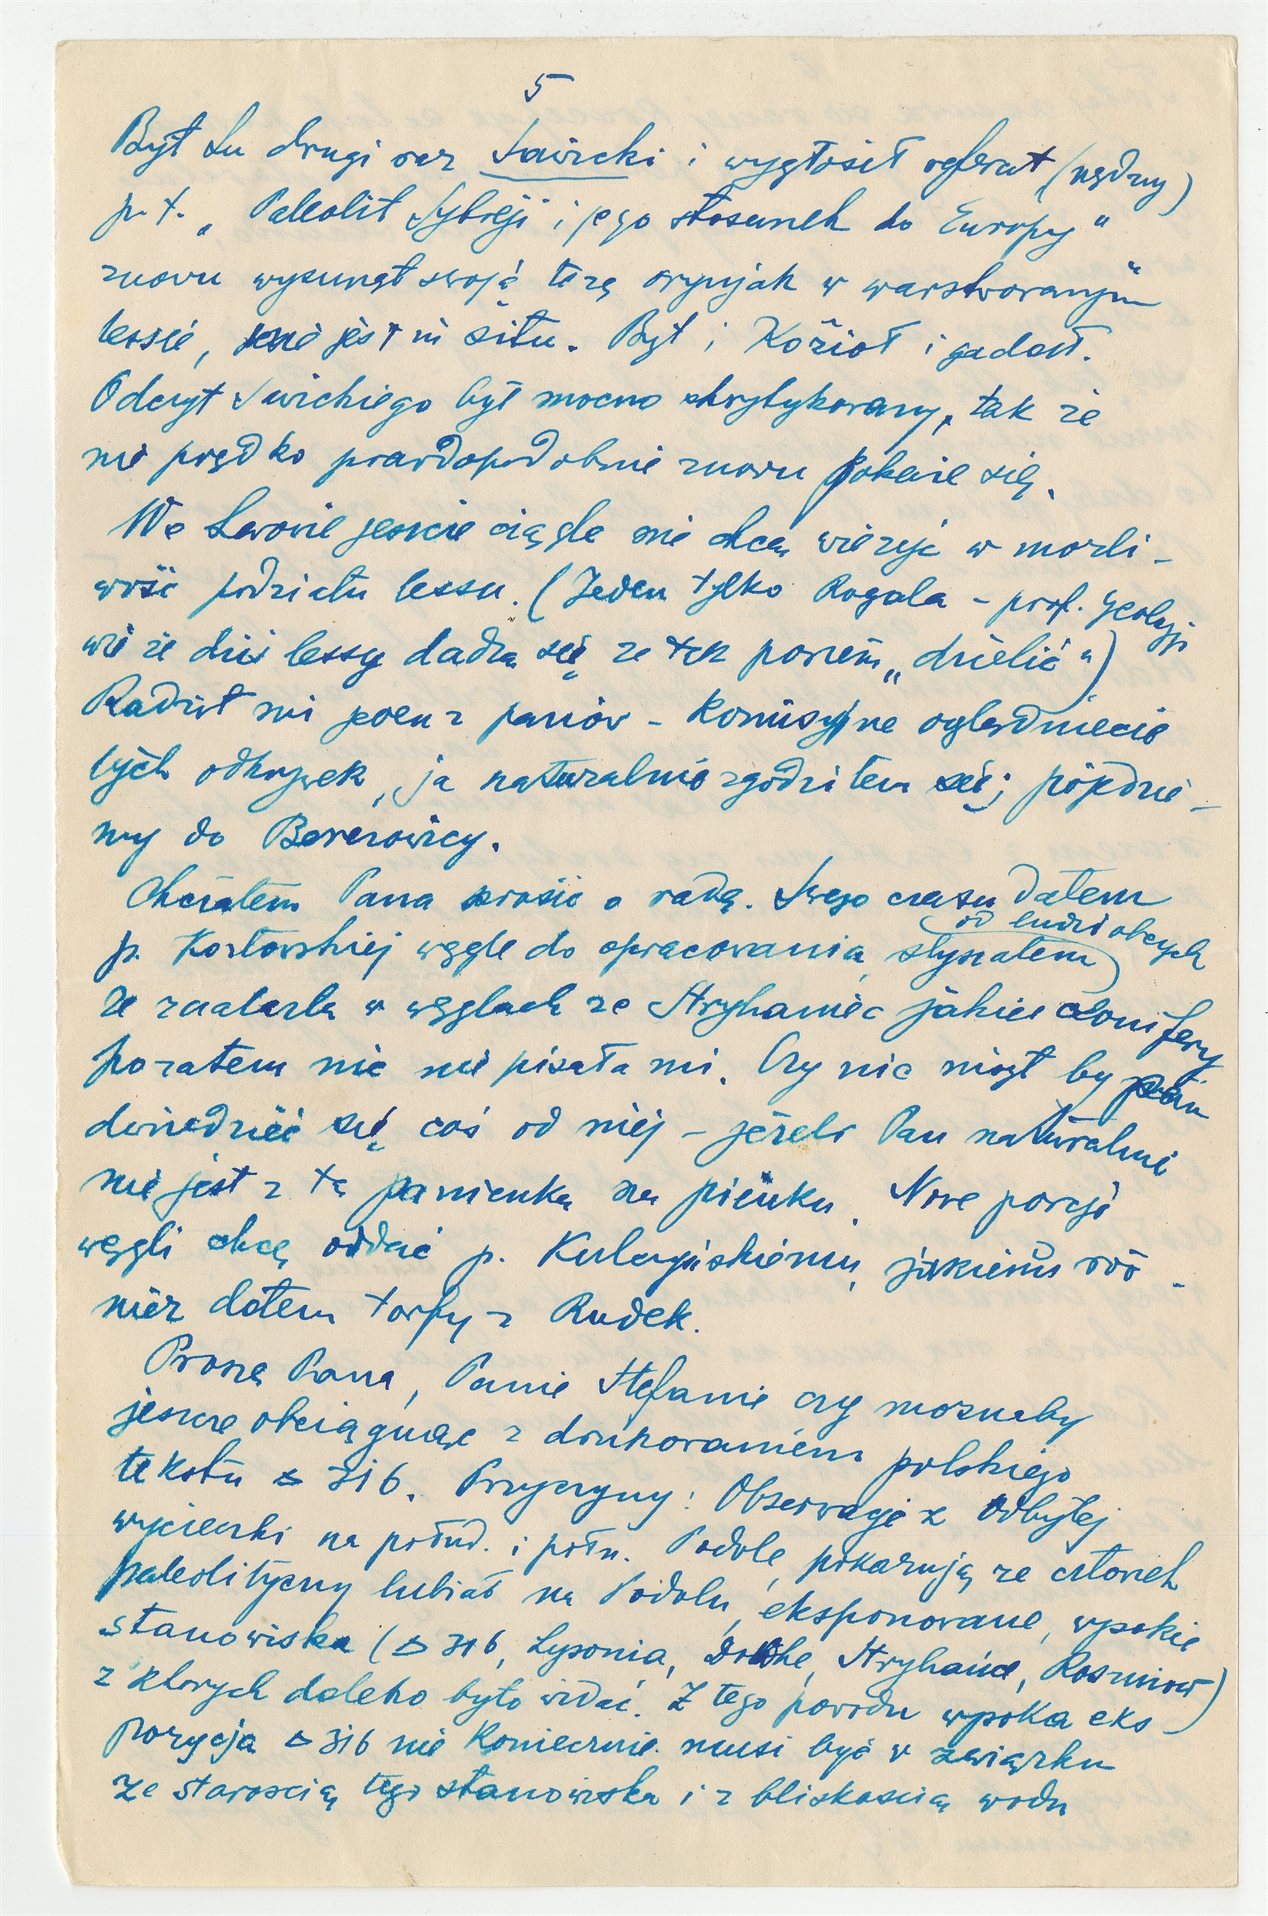 5
Był tu drugi raz Sawicki i wygłosił referat (nędzny)
p. t. „Paleolit Syberji i jego stosunek do Europy"
znowu wysunął swoją tezę oryniak w warstwowanym
lessie, nie jest in situ. Był i Kozioł i gadał.
Odczyt Swickiego był mocno skrytykowany, tak że
nie prędko prawdopodobnie znowu pokaże się.
We Lwowie jeszcze ciągle nie chcą wierzyć w możli-
wość podziału lessu. (Jeden tylko Rogala - prof. geologji
wie że dziś lessy dadzą się że tak powiem „dzielić")
Radził mi jeden z panów - komisyjne oglądnięcie
tych odkrywek, ja naturalnie zgodziłem się; pójdzie-
my do Berezowicy.
Chciałem Pana prosić o radę. Swego czasu dałem
p. Kozłowskiej węgle do opracowania, słyszałem (od ludzi obcych)
że znalazła w węglach ze Stryhaniec jakieś conifery
pozatem nic nie pisała mi. Czy nie mógł by pan
dowiedzieć się coś od niej - jeżeli Pan naturalnie
nie jest z tą panienką na pieńku. Nowe porcje
węgli chcę oddać p. Kulczyńskiemu, jakiemu rów-
nież dałem torfy z Rudek.
Proszę Pana, Panie Stefanie czy możnaby
jeszcze obciągnąć z drukowaniem polskiego
tekstu △ 316. Przyczyny: Obserwacje z odbytej
wycieczki na połud. i półn. Podole, pokazują że człowiek
paleolityczny lubiał na Podolu, eksponowane, wysokie
stanowiska (△ 316, Łysonia, Stryhańce, Roszniow)
z których daleko było widać. Z tego powodu wysoka eks-
pozycja △ 316 nie koniecznie musi być w związku
ze starością tego stanowiska i z bliskością wody